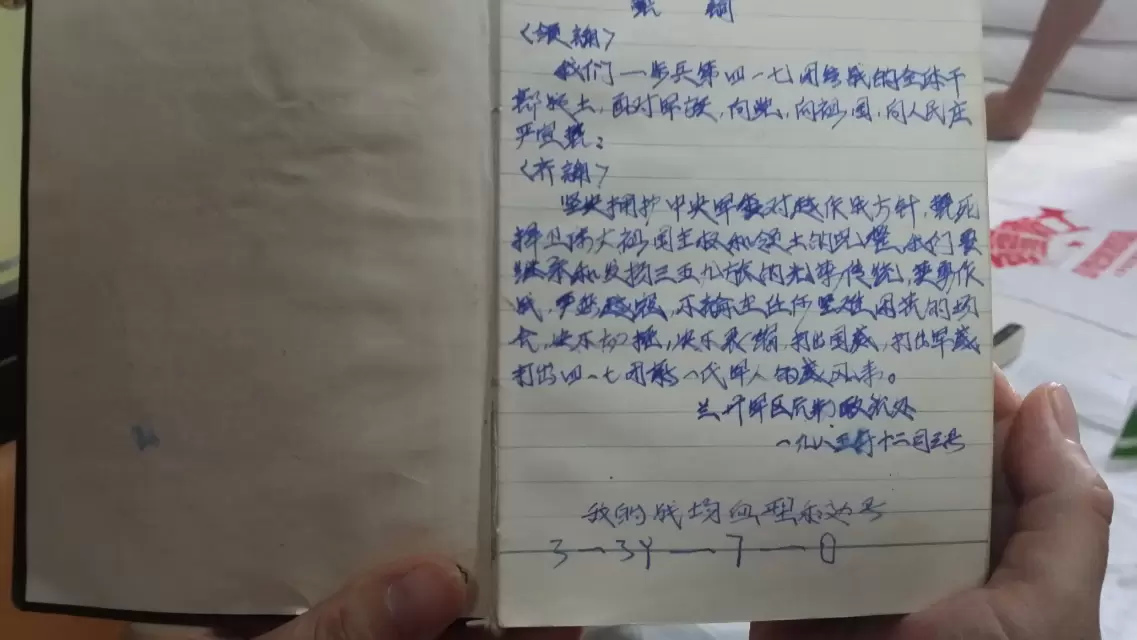 誓 词
〈领诵〉
我们一步兵第四一七团参战的全体干
部战士，面对军旗，向党，向祖国，向人民庄
严宣誓：
〈齐诵〉
坚决拥护中央军委对越作战方针，誓死
捍卫伟大祖国主权和领土的完整，我们要
继承和发扬三五九旅的光荣传统，英勇作
战，不论在任何坚难困苦的场
合，决不动摇，决不退缩，打出国威，打出军威
打出四一七团新一代军人的威风来。
兰州军区后勤政治处
一九八五年十二月三号
我的战场血型和边号
3—34—7—0